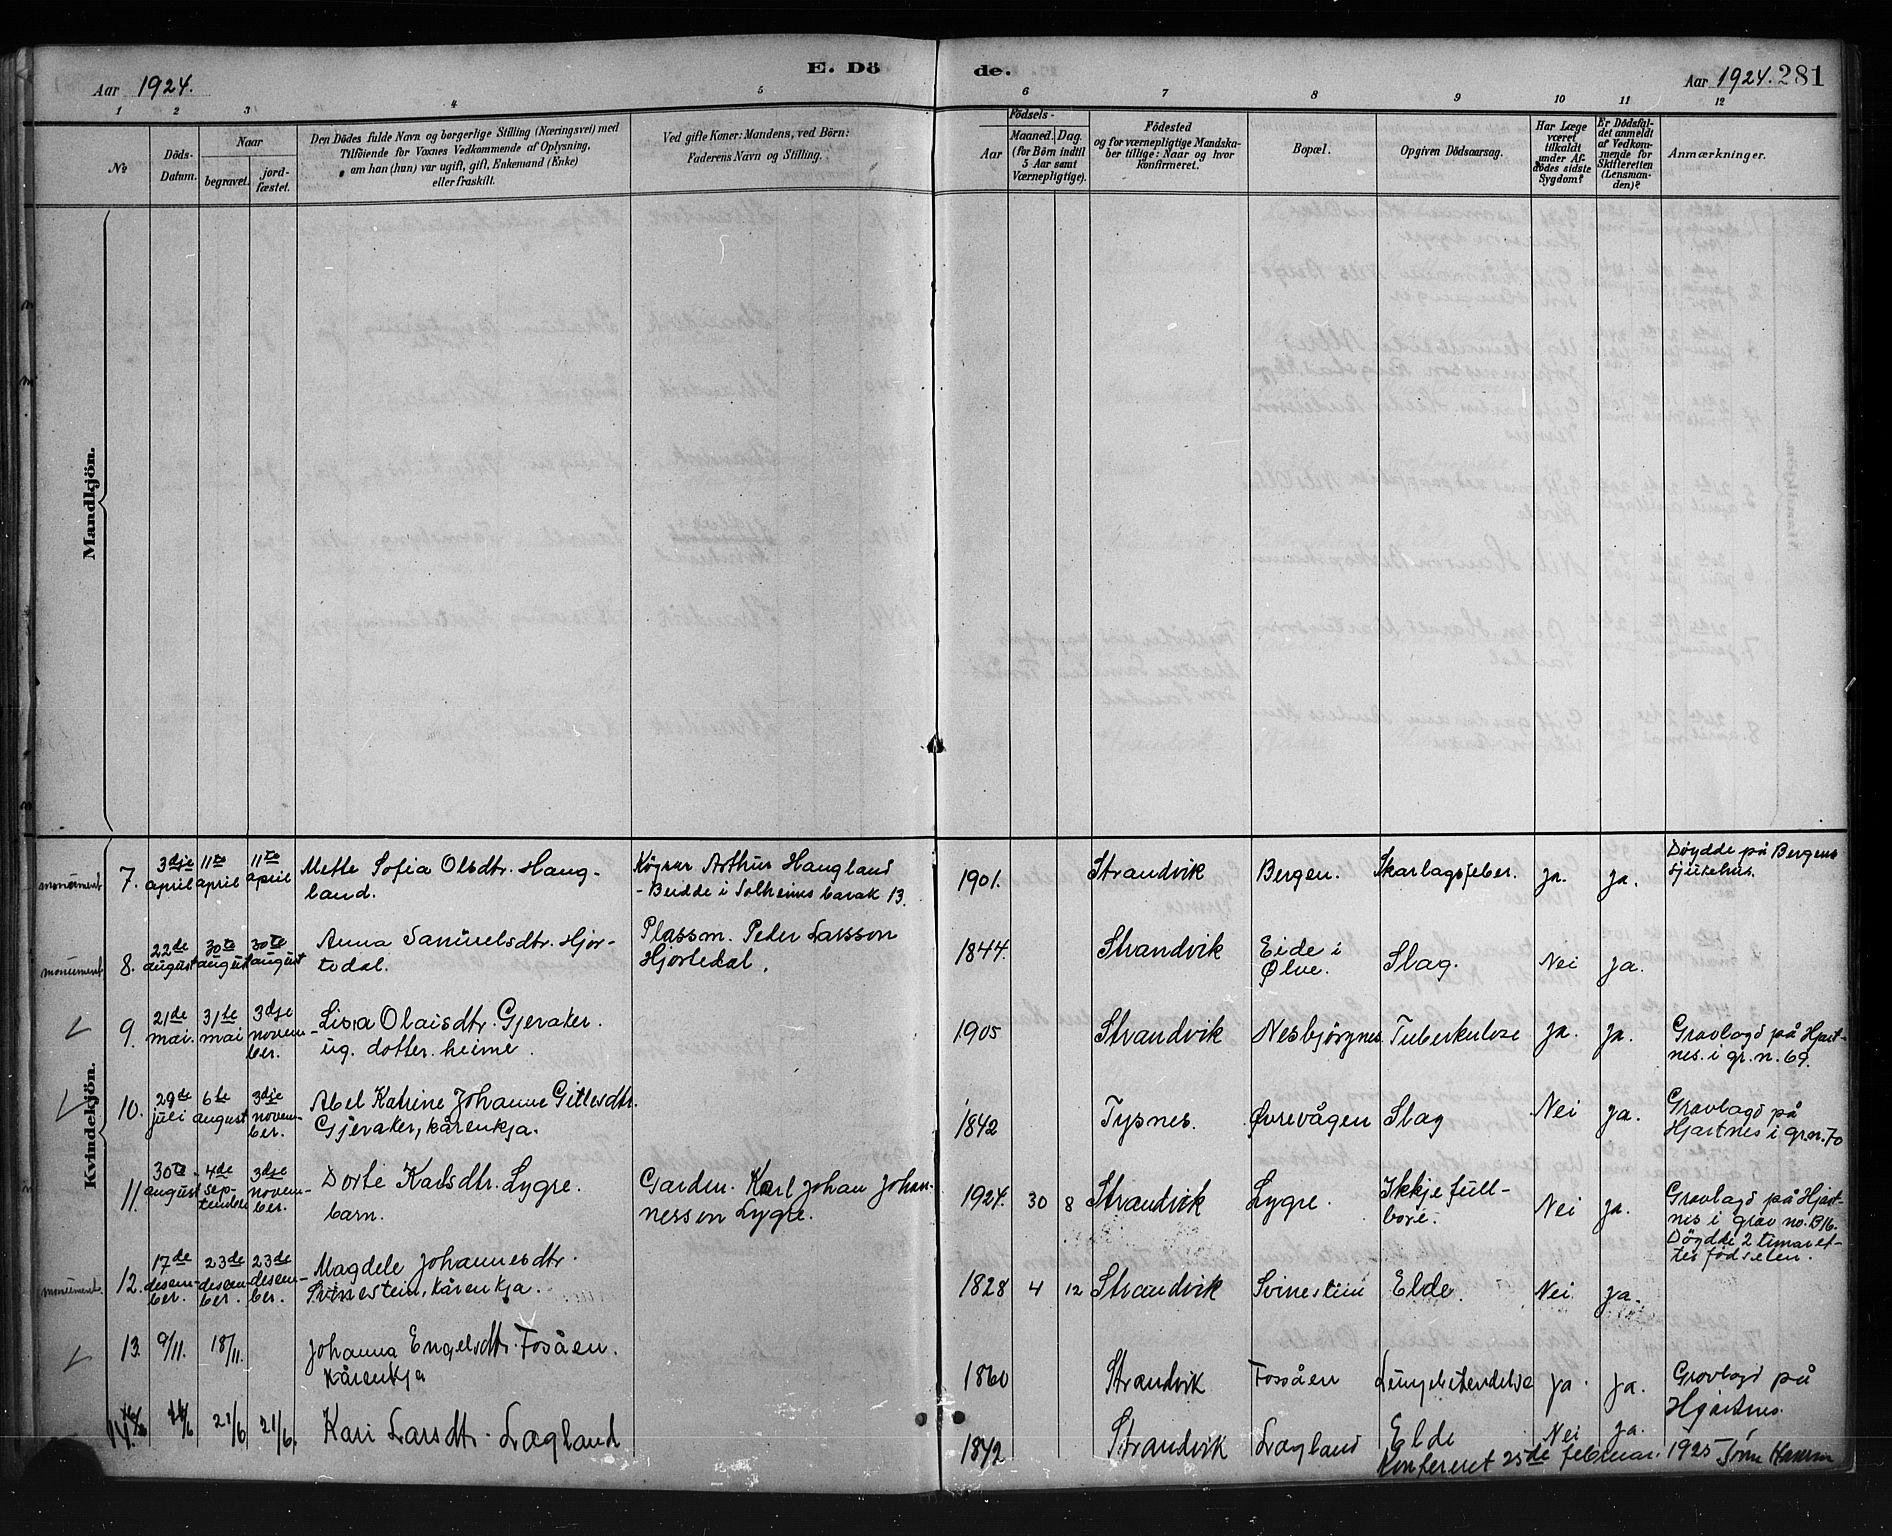 Aar 1924.
E. Dö
de.
Aar 1924. 281
1 2 3 4 5
6 7 8 9 10 11 12
№
Döds-
Datum.
Naar
begravet.
jord-
fæstet.
Den Dödes fulde Navn og borgerlige Stilling (Næringsvei) med
Tilföiende for Voxnes Vedkommende af Oplysning,
om han (hun) var ugift, gift, Enkemand (Enke)
eller fraskilt.
Ved gifte Koner: Mandens, ved Börn:
Faderens Navn og Stilling.
Födsels-
Aar
Maaned. Dag.
(for Börn indtil
5 Aar samt
Værnepligtige).
Födested
og for værnepligtige Mandska-
ber tillige: Naar og hvor
konfirmeret.
Bopæl.
Opgiven Dödsaarsag.
Har Læge
været
tilkaldt
under Af-
dödes sidste
Sygdom?
Er Dödsfal-
det anmeldt
af Vedkom-
mende for
Skifteretten
(Lensman-
den)?
Anmærkninger.
Mandkjön.
Kvindekjön.
monument
7.
3dje
april
11te
april
11te
april
Mette Sofia Olsdtr. Haug-
land.
Arthur Haugland
- Budde i Solheims barak 13.
1901.
Strandvik
Bergen.
Skarlagsfeber.
ja.
ja.
Döydde på Bergens
sjukehus.
monument
8.
22de
august
30te
august
30te
august
Anna Samuelsdtr. Hjor-
tedal.
Plassm. Peder Larsson
Hjortedal.
1844.
Strandvik
Eide i
Ølve.
Slag.
Nei
ja.
9.
21de
mai.
31te
mai
3dje
novem-
ber.
Lisa Olaisdtr. Gjeraker.
ug. dotter. heime.
1905
Strandvik
Nesbjörgnes.
Tuberkulose
ja.
ja.
Gravlagd på Hjart-
nes. i gr. n. 69.
10.
29de
juli
6te
august
3dje
novem-
ber.
Abel Katrine Johanne Gitlesdtr.
Gjeraker, kårenkja.
1842
Tysnes.
Øvrevågen
Slag
Nei
ja.
Gravlagd på
Hjartnes i gr.nr. 70
11.
30te
august
4de
sep-
tember
3dje
novem-
ber.
Dorte Karlsdtr. Lygre.
barn.
Gardm. Karl Johan Johan-
nesson Lygre.
1924. 30 8
Strandvik
Lygre.
Ikkje full-
bore.
Nei
ja.
Gravlagd på Hjart-
nes i grav no. B16.
Döydde 2 timar et-
ter födselen.
monument.
12.
17de
desem-
ber.
23de
desem-
ber.
23de
desem-
ber.
Magdele Johannesdtr.
Svinestein, kårenkja.
1828 4 12
Strandvik
Svinestein
Elde.
Nei
ja.
13.
9/11.
18/11.
Johanna Engelsdtr. Fosåen.
kårenkja
1860
Strandvik
Fossåen
Lungebetendelse
ja.
ja.
Gravlagd på
Hjartnes.
14.
21/6
21/6.
Kari Larsdtr. Lægland
1842
Strandvik
Lægland
Elde
Nei
ja.
Konfereret 25de februar. 1925